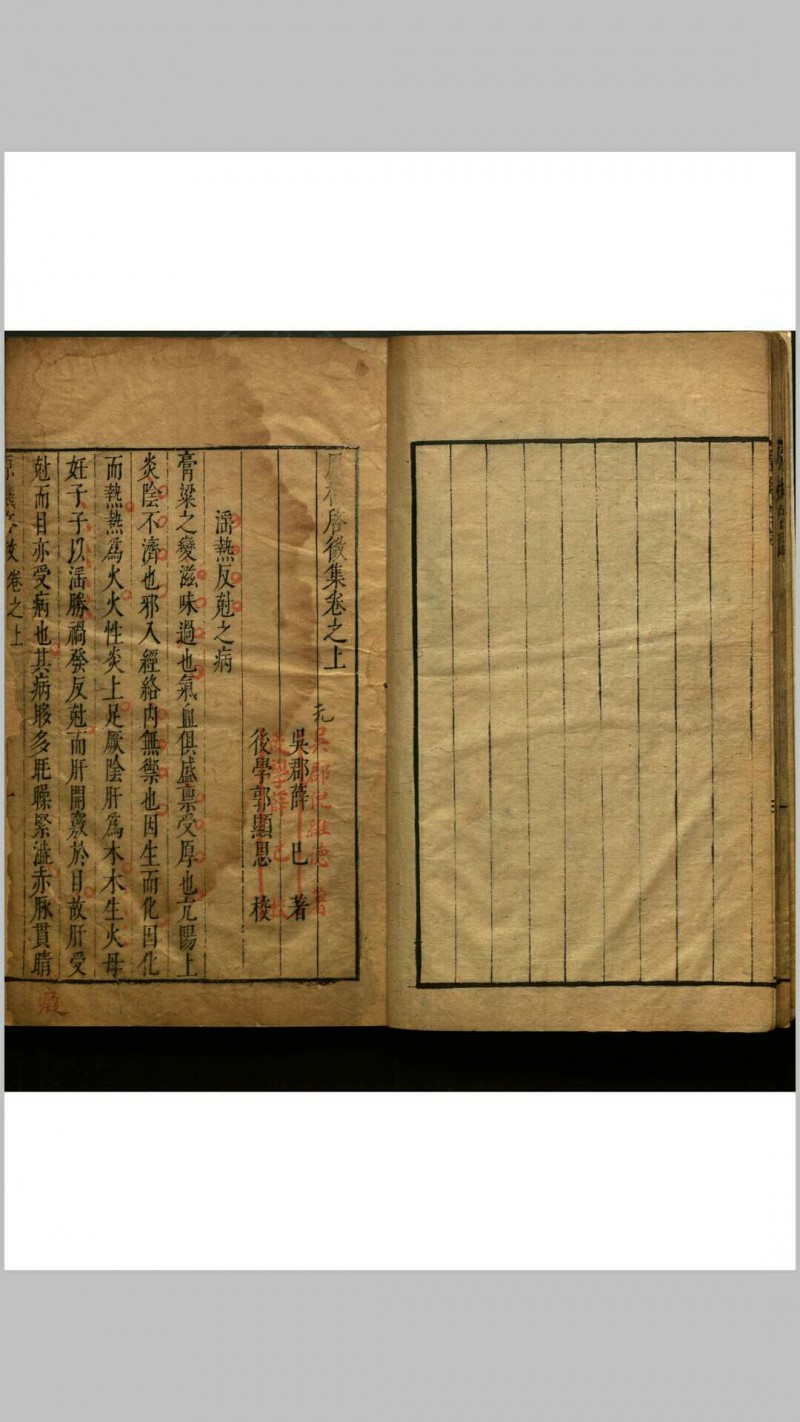 原機啓微集卷之上
元
吳郡薛 己 著
吳郡倪維德 著
後學郭顯恩 稜
後學薛 己 校
淫熱反尅之病
膏粱之變滋味過也氣血俱盛禀受厚也亢陽上
炎陰不濟也邪入經絡內無禦也因生而化因化
而熱熱爲火火性炎上足厥陰肝爲木木生火母
妊子子以淫勝禍發反尅而肝開竅於目故肝受
尅而目亦受病也其病眵多眊矂緊澁赤脉貫睛
卷之上
一
癡